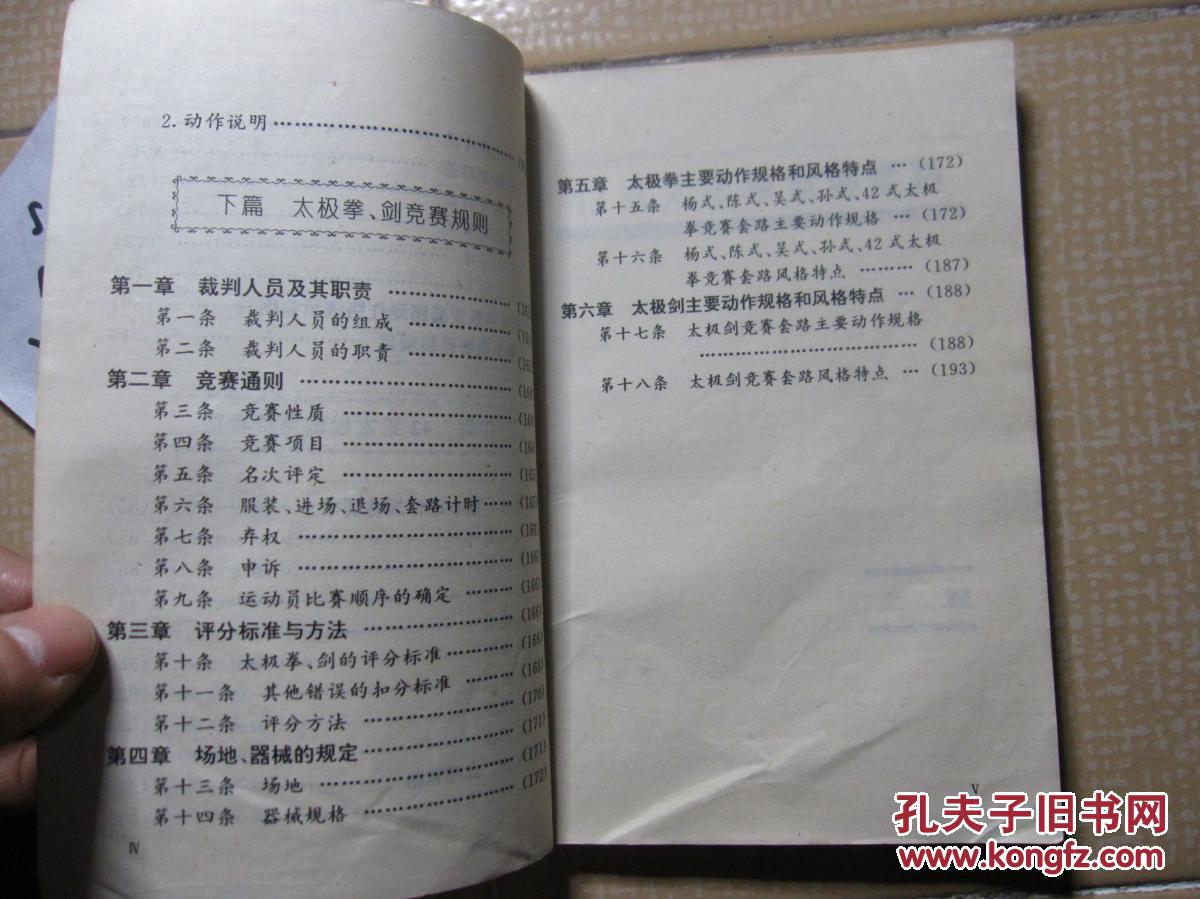 2.动作说明……………………………
下篇 太极拳、剑竞赛规则
第一章 裁判人员及其职责 ……………
第一条 裁判人员的组成 ……………
第二条 裁判人员的职责 ……………
第二章 竞赛通则 ……………………… (164
第三条 竞赛性质 ………………… (164
第四条 竞赛项目 ………………… (164
第五条 名次评定 ………………… (165)
第六条 服装、进场、退场、套路计时…… (165)
第七条 弃权 ……………………… (166)
第八条 申诉 ……………………… (166)
第九条 运动员比赛顺序的确定 ……… (166)
第三章 评分标准与方法 ……………… (166)
第十条 太极拳、剑的评分标准……… (166)
第十一条 其他错误的扣分标准 ……… (168)
第十二条 评分方法 ……………… (170)
第四章 场地、器械的规定……………… (171)
第十三条 场地 …………………… (171)
第十四条 器械规格 ……………… (172)
Ⅳ
第五章 太极拳主要动作规格和风格特点 … (172)
第十五条 杨式、陈式、吴式、孙式、42式太极
拳竞赛套路主要动作规格 …… (172)
第十六条 杨式、陈式、吴式、孙式、42式太极
拳竞赛套路风格特点 ……… (187)
第六章 太极剑主要动作规格和风格特点 … (188)
第十七条 太极剑竞赛套路主要动作规格
…………………………… (188)
第十八条 太极剑竞赛套路风格特点 … (193)
Ⅴ
孔夫子旧书网
www.kongfz.com